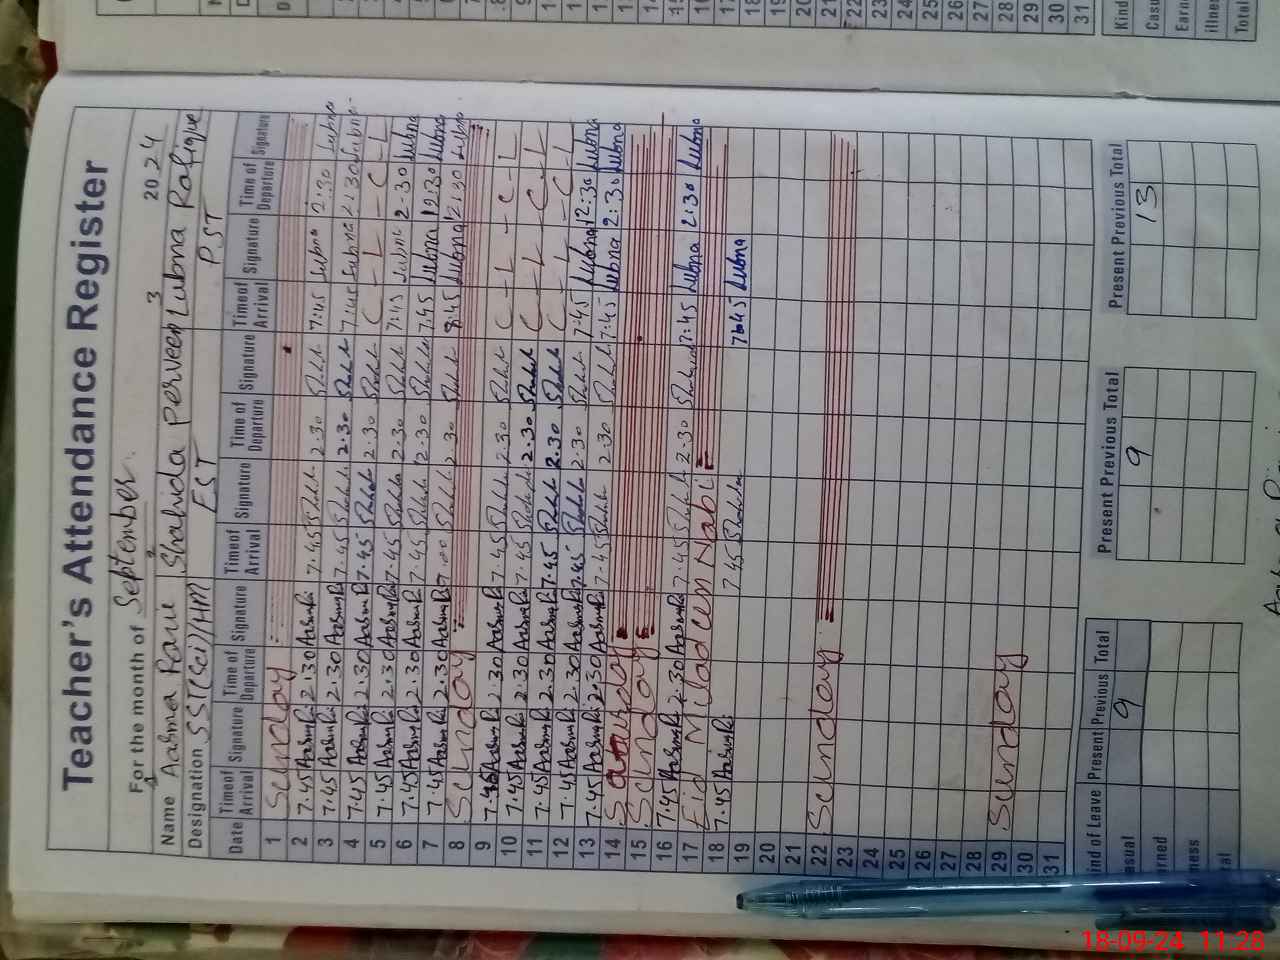 Teacher's Attendance Register
For the month of September. 2024
1 2 3
Name Aasma Rani Shahida Perveen Lubna Rafique
Designation SST(Sci)/HM EST PST
Date Timeof Arrival Signature Time of Departure Signature Timeof Arrival Signature Time of Departure Signature Timeof Arrival Signature Time of Departure Signature
1 Sunday
2 7.45 Aasma R 2.30 Aasma R 7.45 Shahida 2.30 Shahida 7:45 Lubna 2:30 Lubna
3 7.45 Aasma R 2.30 Aasma R 7.45 Shahida 2.30 Shahida 7:45 Lubna 2:30 Lubna
4 7.45 Aasma R 2.30 Aasma R 7.45 Shahida 2.30 Shahida C - L - C - L
5 7.45 Aasma R 2.30 Aasma R 7.45 Shahida 2.30 Shahida 7:45 Lubna 2.30 Lubna
6 7.45 Aasma R 2.30 Aasma R 7.45 Shahida 2.30 Shahida 7.45 Lubna 12:30 Lubna
7 7.45 Aasma R 2.30 Aasma R 7.00 Shahida 2.30 Shahida 8:45 Lubna 12:30 Lubna
8 Sunday
9 7.45 Aasma R 2.30 Aasma R 7.45 Shahida 2.30 Shahida C - L - C - L
10 7.45 Aasma R 2.30 Aasma R 7.45 Shahida 2.30 Shahida C - L - C - L
11 7.45 Aasma R 2.30 Aasma R 7.45 Shahida 2.30 Shahida C - L - C - L
12 7.45 Aasma R 2.30 Aasma R 7.45 Shahida 2.30 Shahida 7:45 Lubna 12:30 Lubna
13 7.45 Aasma R 2.30 Aasma R 7.45 Shahida 2.30 Shahida 7:45 Lubna 2:30 Lubna
14 Saturday
15 Sunday
16 7.45 Aasma R 2.30 Aasma R 7.45 Shahida 2.30 Shahida 7:45 Lubna 2:30 Lubna
17 Eid Milad un Nabi
18 7.45 Aasma R 7.45 Shahida 7:45 Lubna
19
20
21
22 Sunday
23
24
25
26
27
28
29 Sunday
30
31
ind of Leave Present Previous Total Present Previous Total Present Previous Total
asual 9 9 13
rned
ness
tal
15
16
17
18
19
20
21
22
23
24
25
26
27
28
29
30
31
Kind
Casu
Earne
illnes
Total
18-09-24 11:28